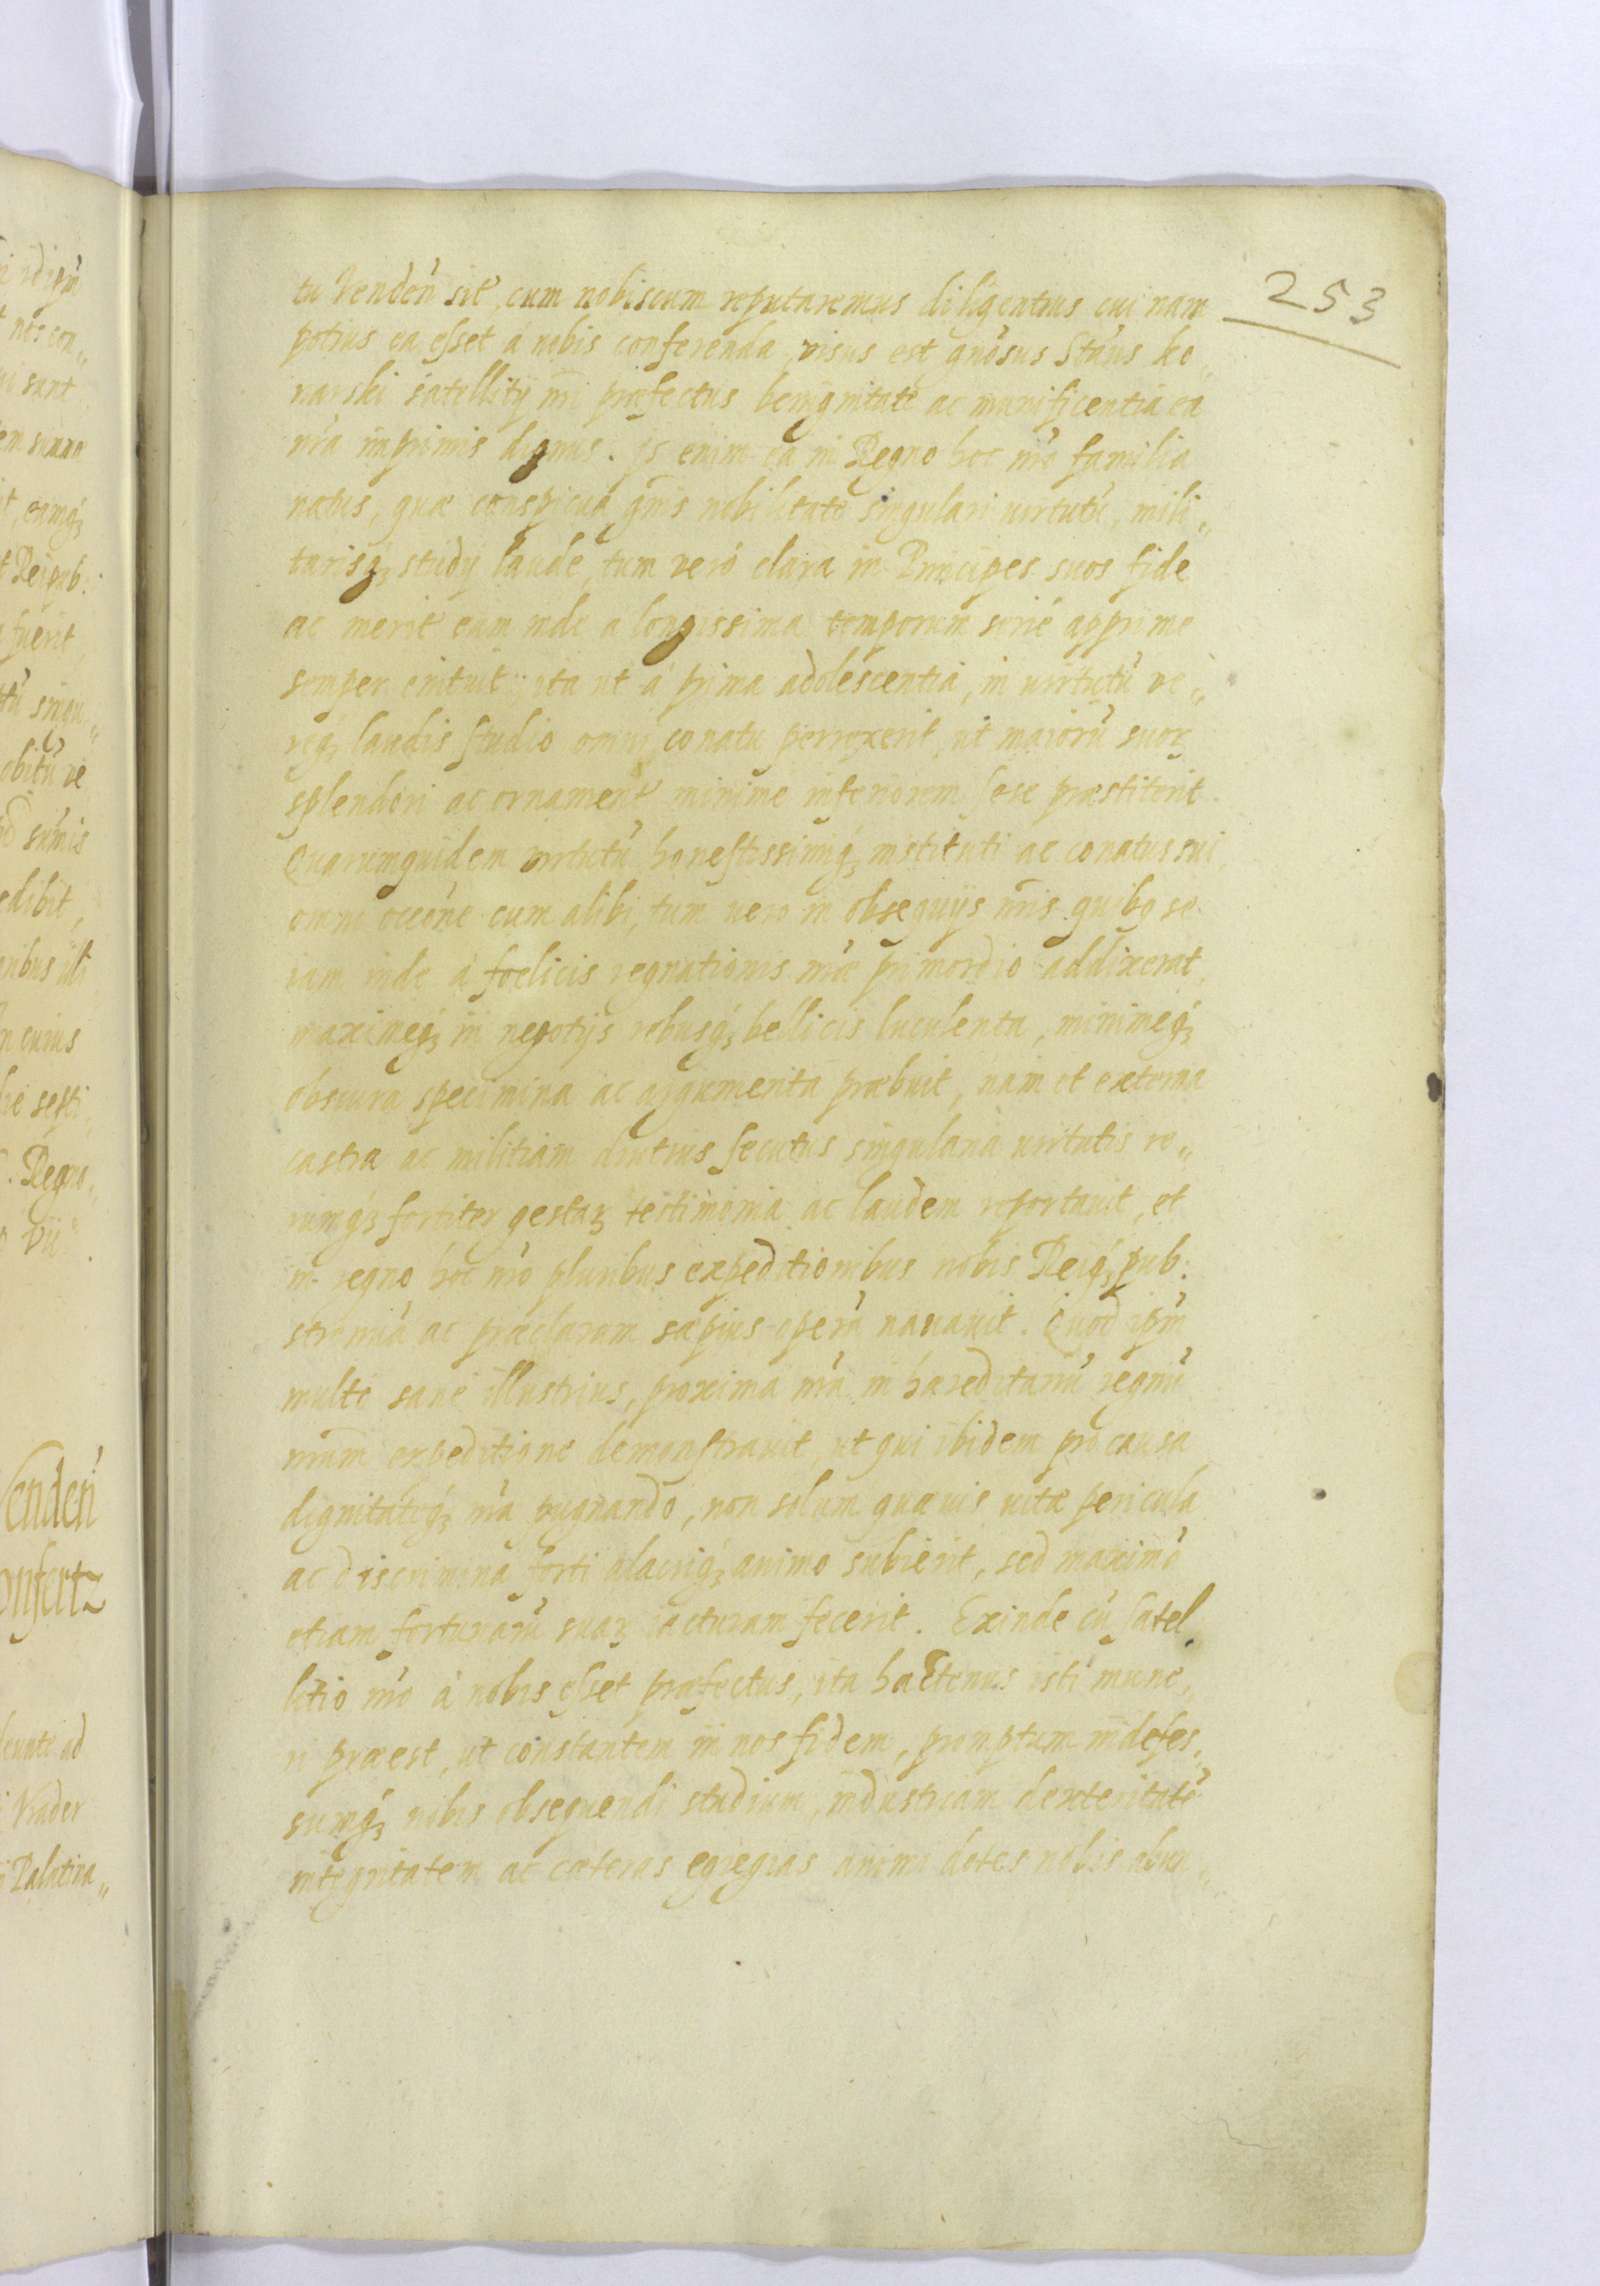 253
tu Venden̄ sit, cum nobiscum reputaremus diligentius cui nam
potius ea esset á nobis conferenda, visus est gnōsus Stāus ko„
narski satellitij nr̄i præfectus benignitate ac munificentia ea
nr̄a inprimis dignus. is enim ea in Regno hoc nr̄o familia
natus, quæ conspicua gn̄is nobilitate singulari virtutū, mili„
tarisq₃ studij laude, tum veró clara in Principes suos fide
ac merit eam inde a longissima temporum serie apprime
semper enituit ita ut á prima adolescentia, in virtutū ve„
req₃ laudis studio omni conatu perrexerit, ut maiorū suoꝝ
splendori ac ornament minime inferiorem sese præstiterit.
Quarumquidem virtutū honestissimiq₃ instituti ac conatus sui
omni occōne cum alibi, tum vero in obsequijs nr̄is quibꝯ se
iam inde á fœlicis regnationis nr̄æ primordio addixerat,
maximeq₃ in negotijs rebusq₃ bellicis luculenta, minimeq₃
obscura specimina ac argumenta præbuit, nam et externa
castra ac militiam diutius secutus singularia virtutis re„
rumq₃ fortiter gestaꝝ testimonia ac laudem reportauit, et
in regno hoc nr̄o pluribus expeditionibus nobis Reiq₃ pub.
strenuā ac præclaram sæpius operā nauauit. Quod ipm̄
multo sane illustrius, proxima nr̄a in hæreditariū regnū
nr̄um expeditione demonstrauit, ut qui ibidem pro causa
dignitateq₃ nr̄a pugnando, non solum quæuis vitæ pericula
ac discrimina forti alacriq₃ animo subierit, sed maximā
etiam fortunarū suaꝝ iacturam fecerit. Exinde cū satel„
litio nr̄o á nobis esset præfectus, ita hactenus isti mune„
ri præest, ut constantem in nos fidem, promptum indefes„
sumq₃ nobis obsequendi studium, industriam dexteritatē
integritatem ac cæteras egregias animi dotes nobis abun„